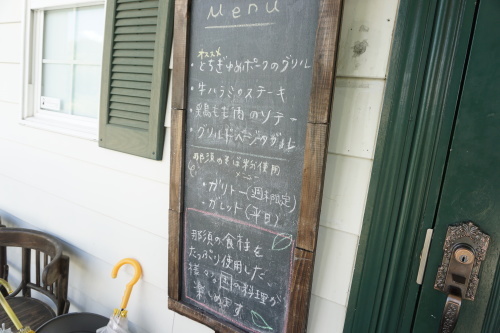 Menu
オススメ
・とちぎゆめポークのグリル
・牛ハラミのステーキ
・鶏もも肉のソテー
・グリルドベジタブル
那須のそば粉使用
メニュー
・ガリトー(週末限定)
・ガレット(平日)
那須の食材を
たっぷり使用した、
様々な国の料理が
楽しめます